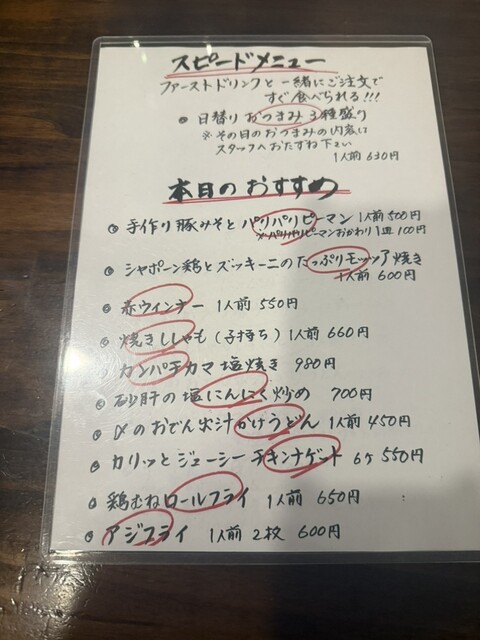 スピードメニュー
ファーストドリンクと一緒にご注文で
すぐ食べられる!!!
日替り おつまみ3種盛り
※その日のおつまみの内容は
スタッフへおたずね下さい
1人前 630円
本日のおすすめ
手作り豚みそとパリパリピーマン 1人前500円
※パリパリピーマンおかわり1皿100円
シャポーン鶏とズッキーニのたっぷりモッツァ焼き
1人前 600円
赤ウィンナー 1人前 550円
焼きししゃも(子持ち) 1人前 660円
カンパチカマ 塩焼き 980円
砂肝の塩にんにく炒め 700円
〆のおでん出汁かけうどん 1人前 450円
カリッとジューシーチキンナゲット 6ケ 550円
鶏むねロールフライ 1人前 650円
アジフライ 1人前 2枚 600円